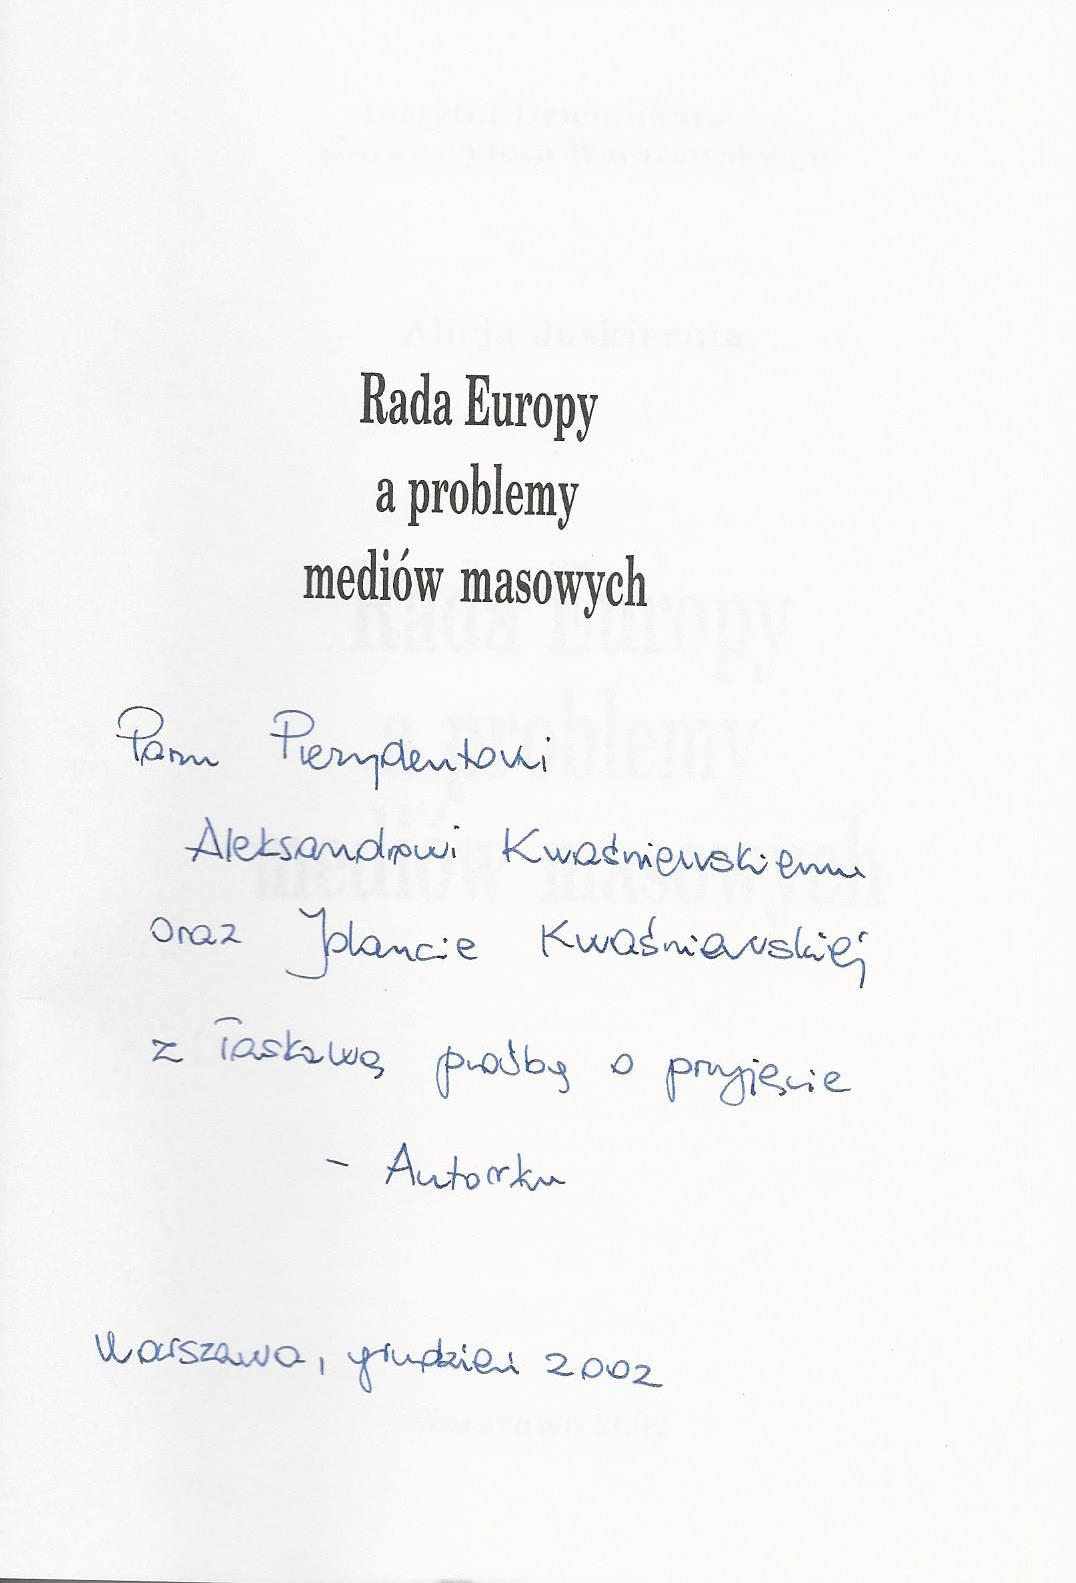 Rada Europy
a problemy
mediów masowych
Panu Prezydentowi
Aleksandrowi Kwaśniewskiemu
oraz Jolancie Kwaśniewskiej
z łaskawą prośbą o przyjęcie
- Autorka
Warszawa, grudzień 2002